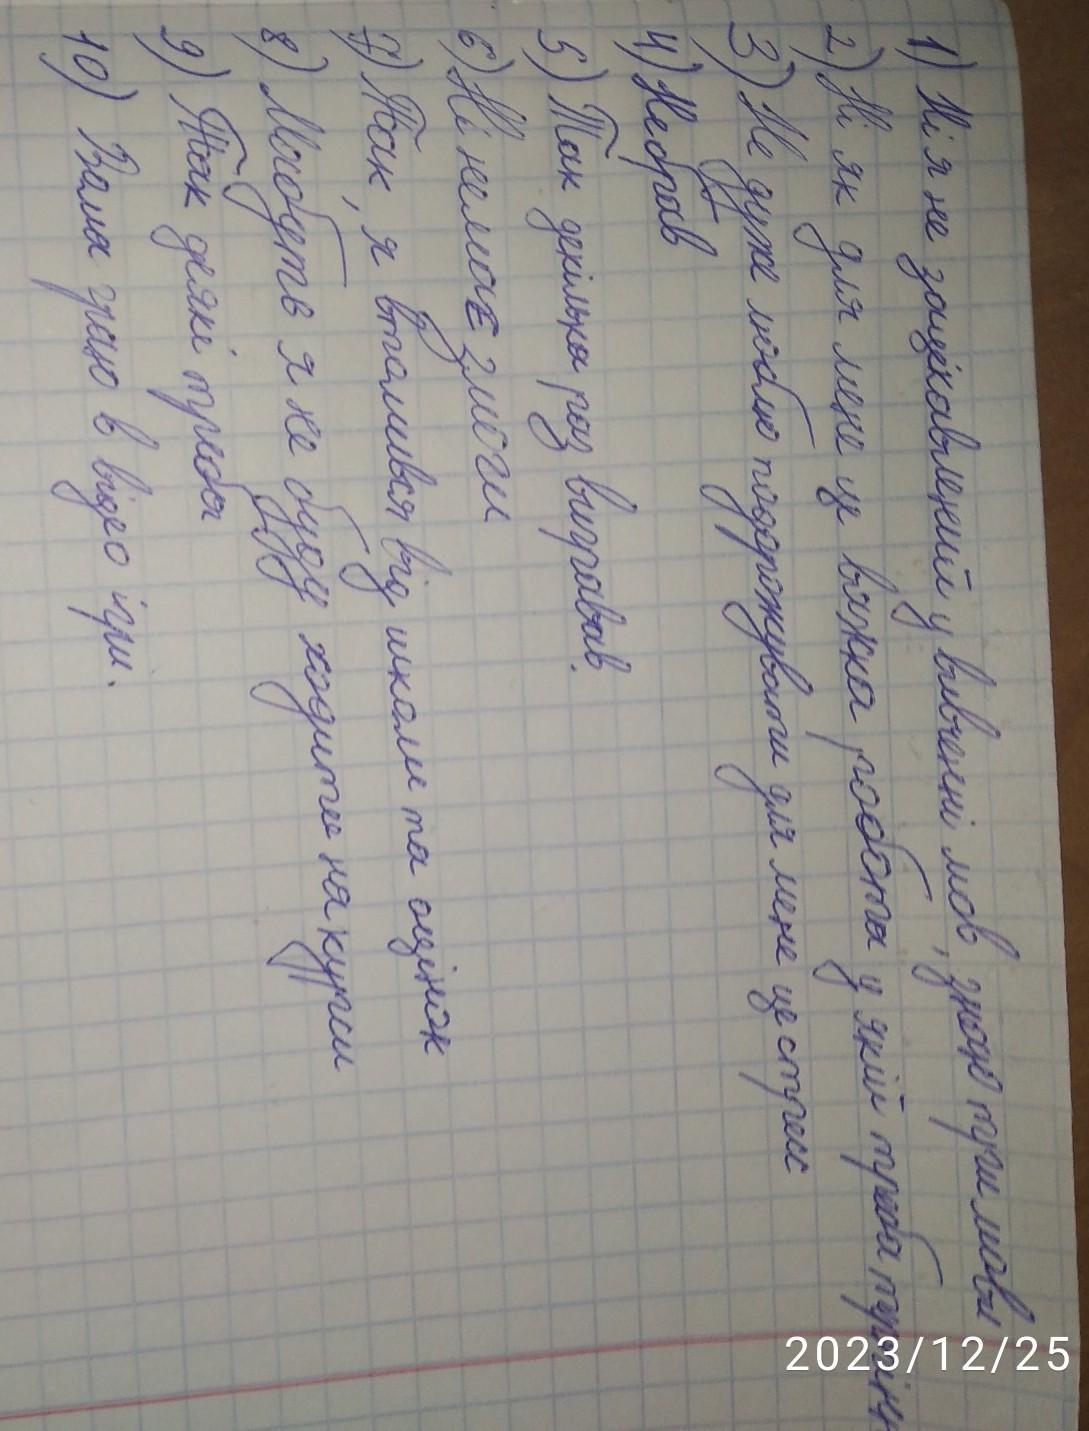 1) Ні я не зацікавлений у вивченні мов, знаю три мови
2) Ні як для мене це важка робота у якій треба
3) Не дуже люблю подорожувати для мене це стрес
4) Не брав
5) Так декілька раз вигравав.
6) Ні немає змоги
7) Так, я втомився від школи та оцінок
8) Мабуть я не буду ходити на курси
9) Так деякі треба
10) Вдома граю в відео ігри.
2023/12/25